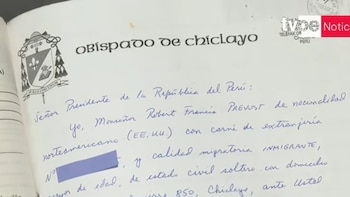 tvpe Notic
OBISPADO DE CHICLAYO
Señor Presidente de la República del Perú:
Yo, Monseñor Robert Francis PREVOST de nacionalidad
norteamericano (EE.UU.) con carné de extranjería
N° , y calidad migratoria INMIGRANTE,
de edad, de estado civil soltero con domicilio
850, Chiclayo, ante Usted